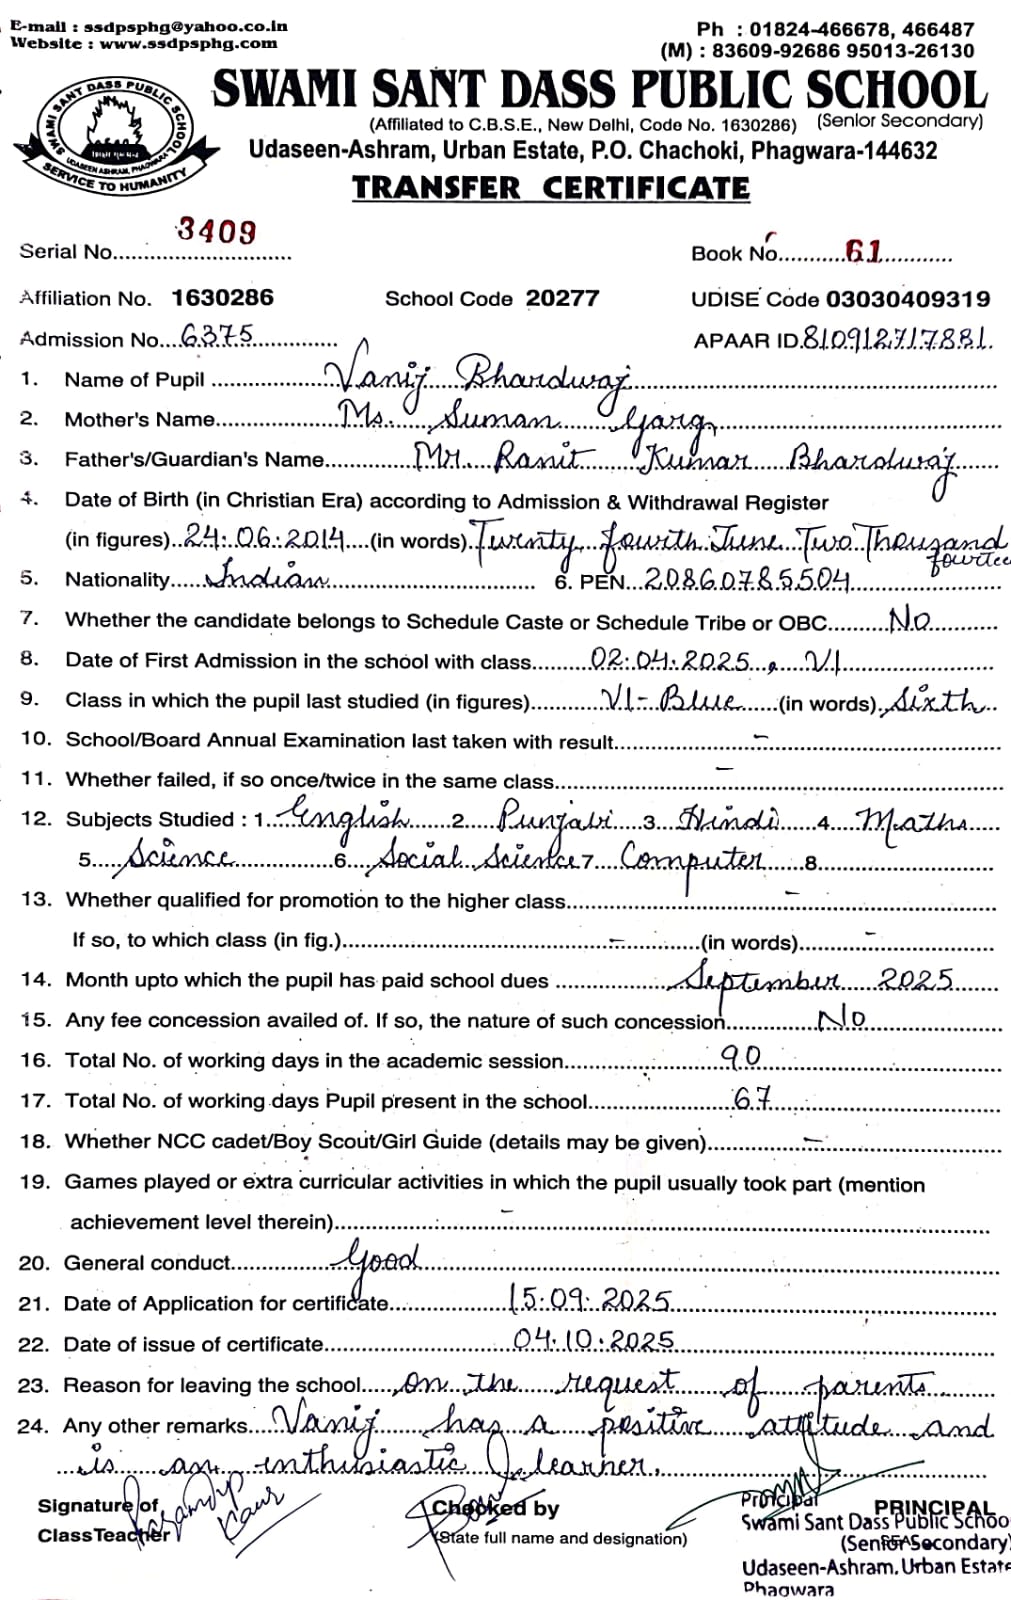 E-mail : ssdpsphg@yahoo.co.in
Website : www.ssdpsphg.com
Ph : 01824-466678, 466487
(M) : 83609-92686 95013-26130
SWAMI SANT DASS PUBLIC SCHOOL
SWAMI SANT DASS PUBLIC SCHOOL
UDASEEN ASHRAM, PHAGWARA
SERVICE TO HUMANITY
(Affiliated to C.B.S.E., New Delhi, Code No. 1630286) (Senior Secondary)
Udaseen-Ashram, Urban Estate, P.O. Chachoki, Phagwara-144632
TRANSFER CERTIFICATE
Serial No. 3409 Book No. 61
Affiliation No. 1630286 School Code 20277 UDISE Code 03030409319
Admission No. 6375 APAAR ID. 810912717881.
1. Name of Pupil Vanij Bhardwaj
2. Mother's Name Ms. Suman Garg
3. Father's/Guardian's Name Mr. Ranit Kumar Bhardwaj
4. Date of Birth (in Christian Era) according to Admission & Withdrawal Register
(in figures) 24.06.2014 (in words) Twenty fourth June Two Thousand
fourtee
5. Nationality Indian 6. PEN 20860785504
7. Whether the candidate belongs to Schedule Caste or Schedule Tribe or OBC No
8. Date of First Admission in the school with class 02.04.2025, VI
9. Class in which the pupil last studied (in figures) VI-Blue (in words) Sixth
10. School/Board Annual Examination last taken with result -
11. Whether failed, if so once/twice in the same class -
12. Subjects Studied : 1. English 2. Punjabi 3. Hindi 4. Maths
5. Science 6. Social Science 7. Computer 8.
13. Whether qualified for promotion to the higher class -
If so, to which class (in fig.) - (in words) -
14. Month upto which the pupil has paid school dues September 2025
15. Any fee concession availed of. If so, the nature of such concession No
16. Total No. of working days in the academic session 90
17. Total No. of working days Pupil present in the school 67
18. Whether NCC cadet/Boy Scout/Girl Guide (details may be given) -
19. Games played or extra curricular activities in which the pupil usually took part (mention
achievement level therein) -
20. General conduct Good
21. Date of Application for certificate 15.09.2025
22. Date of issue of certificate 04.10.2025
23. Reason for leaving the school on the request of parents
24. Any other remarks Vanij has a positive attitude and
is an enthusiastic learner.
Signature of
Class Teacher
Kaur
Checked by
(State full name and designation)
Principal
PRINCIPAL
Swami Sant Dass Public Schoo
(Senior Secondary)
Udaseen-Ashram, Urban Estate
Phagwara